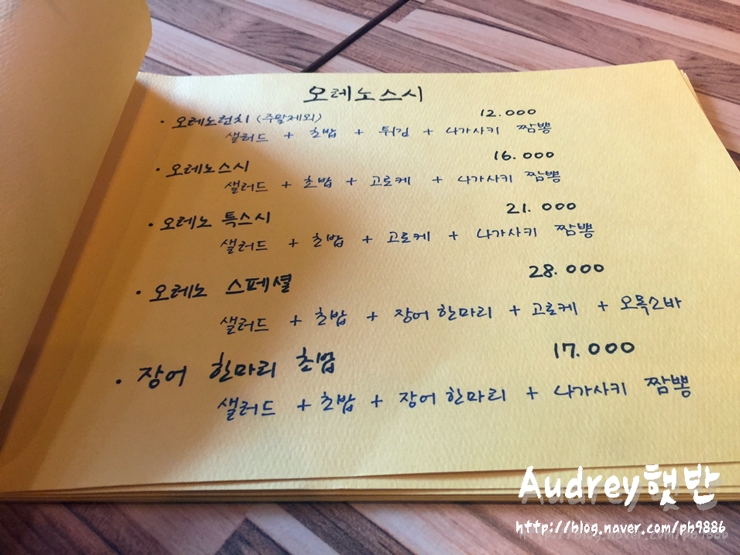 오레노스시
· 오레노런치 (주말제외) 12.000
샐러드 + 초밥 + 튀김 + 나가사키 짬뽕
· 오레노스시 16.000
샐러드 + 초밥 + 고로케 + 나가사키 짬뽕
· 오레노 특스시 21.000
샐러드 + 초밥 + 고로케 + 나가사키 짬뽕
· 오레노 스페셜 28.000
샐러드 + 초밥 + 장어 한마리 + 고로케 + 오목소바
· 장어 한마리 초밥 17.000
샐러드 + 초밥 + 장어 한마리 + 나가사키 짬뽕
Audrey햇반
http://blog.naver.com/ph9886